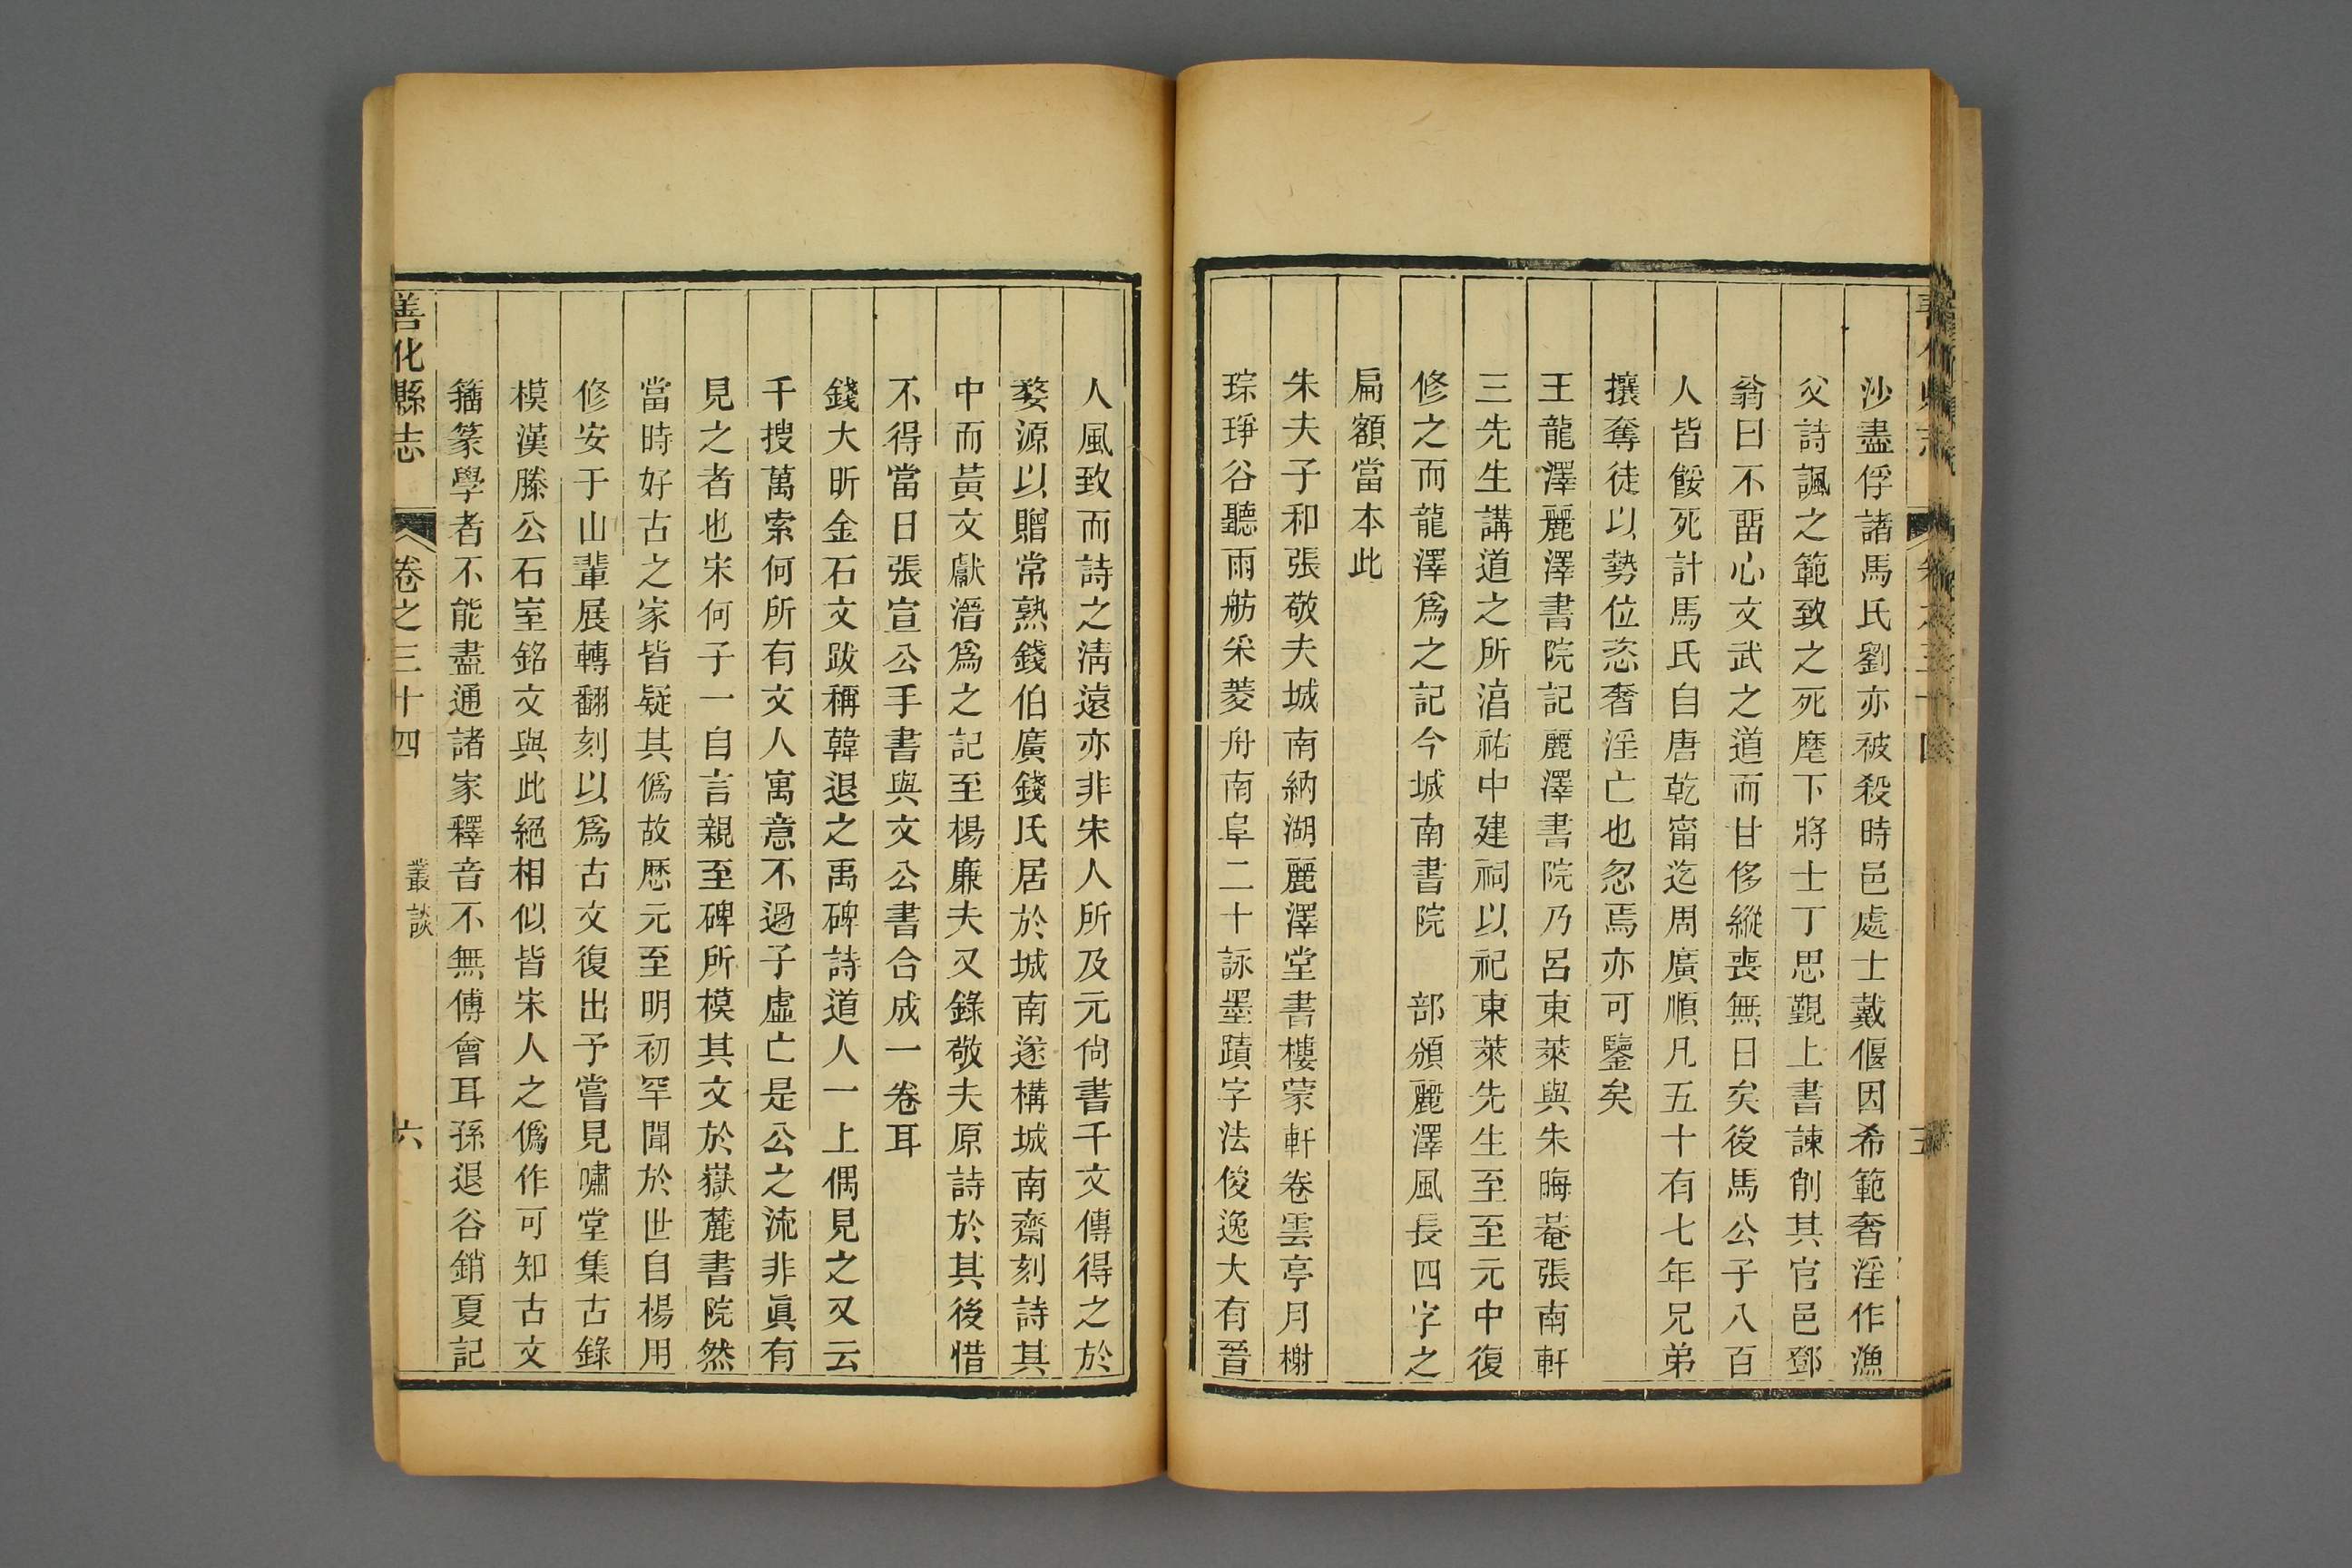 沙盡俘諸馬氏劉亦被殺時邑處士戴偃因希範奢淫作漁
父詩諷之範致之死麾下將士丁思覲上書諫削其官邑鄧
翁曰不畱心文武之道而甘侈縱喪無日矣後馬公子八百
人皆餒死計馬氏自唐乾甯迄周廣順凡五十有七年兄弟
攘奪徒以勢位恣奢淫亡也忽焉亦可鑒矣
王龍澤麗澤書院記麗澤書院乃呂東萊與朱晦菴張南軒
三先生講道之所湻祐中建祠以祀東萊先生至至元中復
修之而龍澤爲之記今城南書院　部頒麗澤風長四字之
扁額當本此
朱夫子和張敬夫城南納湖麗澤堂書樓蒙軒卷雲亭月榭
琮琤谷聽雨舫采菱舟南阜二十詠墨蹟字法俊逸大有晉
人風致而詩之淸遠亦非宋人所及元尙書千文傳得之於
婺源以贈常熟錢伯廣錢氏居於城南遂構城南齋刻詩其
中而黃文獻溍爲之記至楊廉夫又錄敬夫原詩於其後惜
不得當日張宣公手書與文公書合成一卷耳
錢大昕金石文跋稱韓退之禹碑詩道人一上偶見之又云
千搜萬索何所有文人寓意不過子虛亡是公之流非眞有
見之者也宋何子一自言親至碑所模其文於嶽麓書院然
當時好古之家皆疑其僞故歷元至明初罕聞於世自楊用
修安于山輩展轉翻刻以爲古文復出予嘗見嘯堂集古錄
模漢滕公石室銘文與此絕相似皆宋人之僞作可知古文
籒篆學者不能盡通諸家釋音不無傅會耳孫退谷銷夏記
善化縣志　卷之三十四　叢談　六